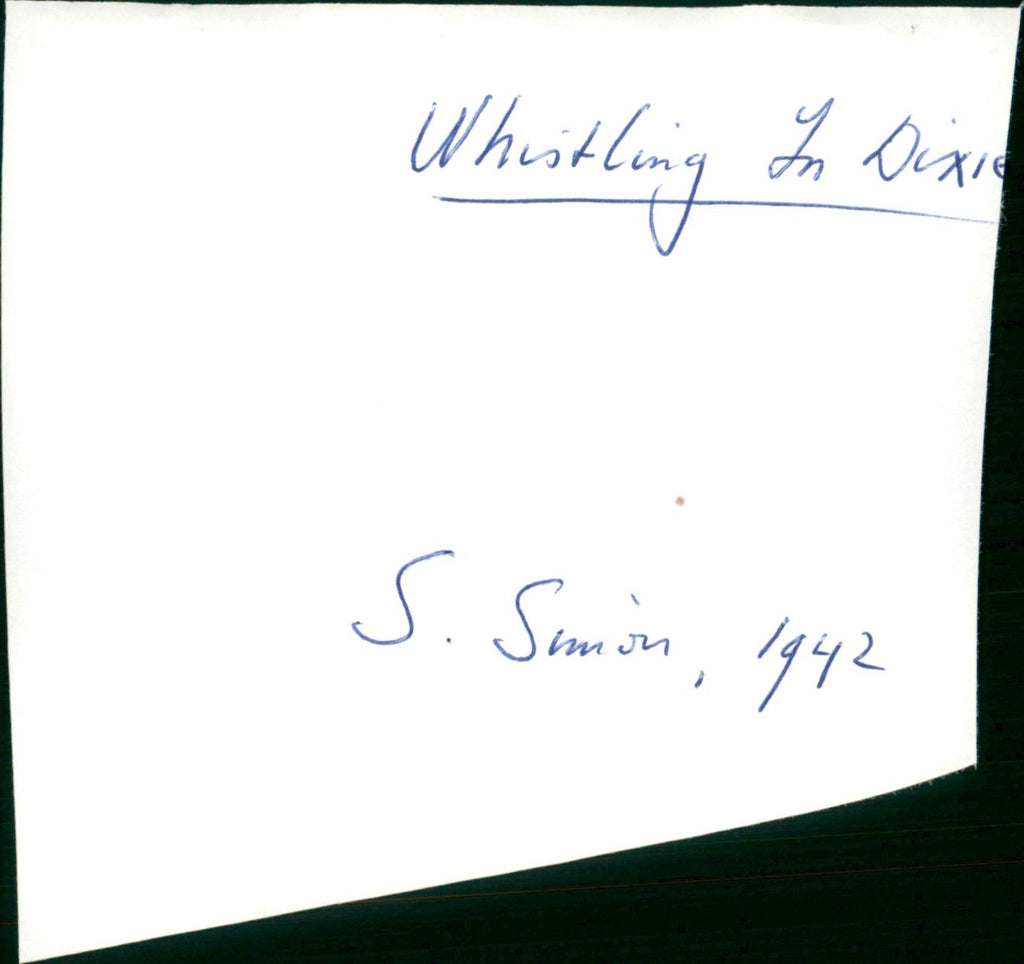 Whistling In Dixie
S. Simon, 1942